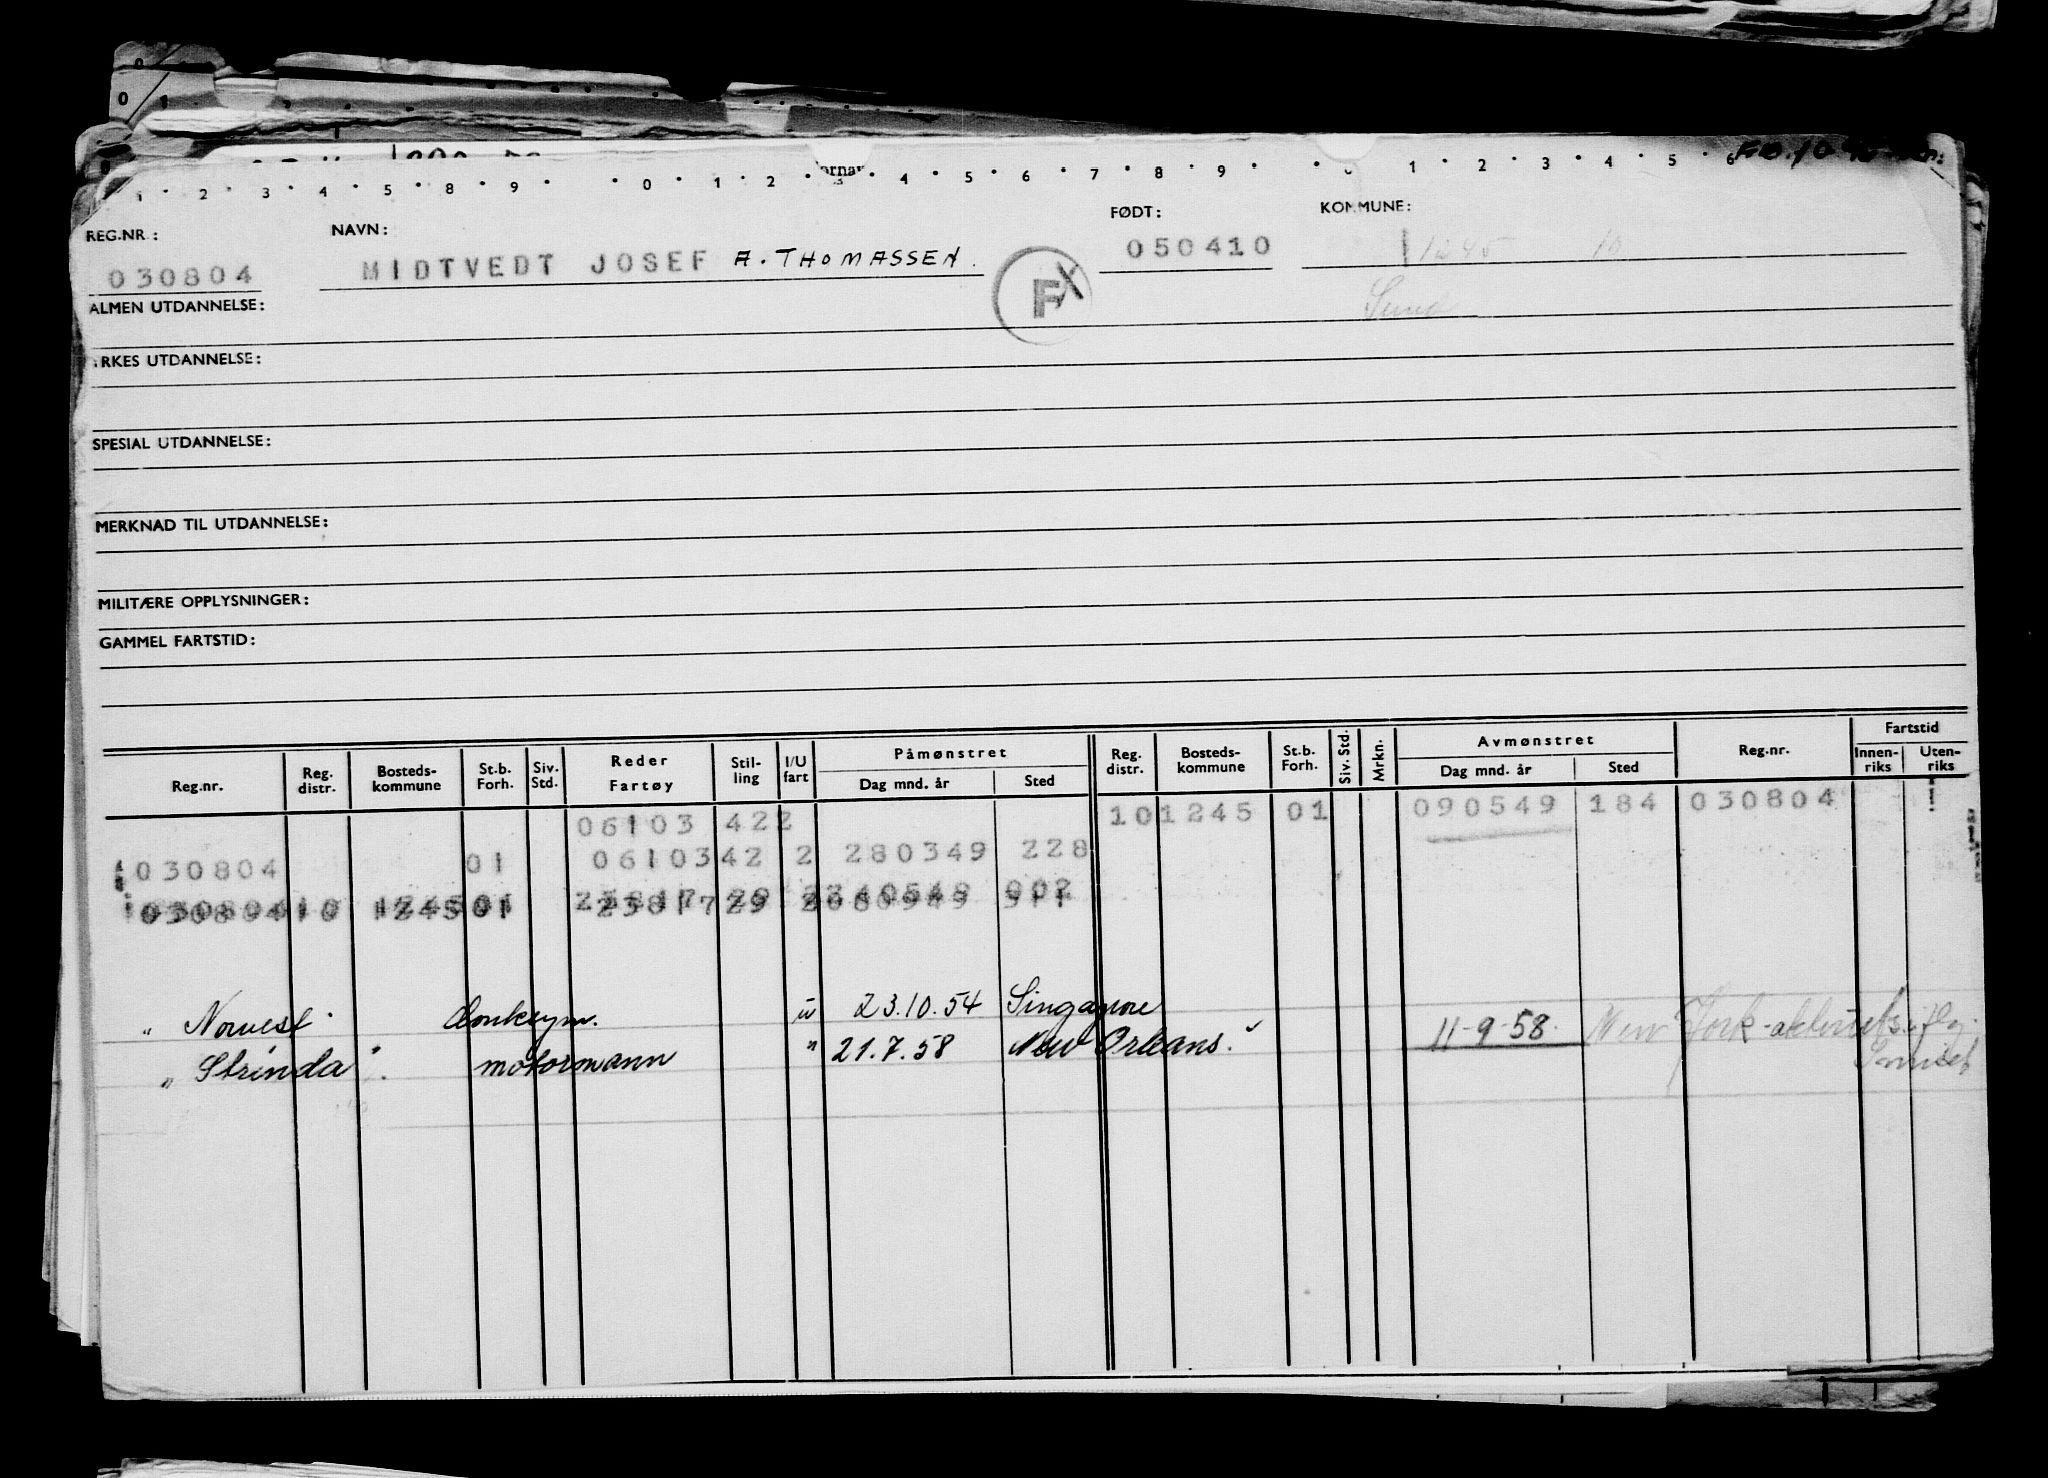 1 2 3 4 5 8 9 0 1 2 4 5 6 7 8 9 1 2 3 4 5 6
REG.NR.: NAVN: FØDT: KOMMUNE:
030804 MIDTVEDT JOSEF A. THOMASSEN. FX 050410 1245 10
ALMEN UTDANNELSE: Sund
YRKES UTDANNELSE:
SPESIAL UTDANNELSE:
MERKNAD TIL UTDANNELSE:
MILITÆRE OPPLYSNINGER:
GAMMEL FARTSTID:
Reg.nr. Reg. distr. Bosteds-kommune St.b. Forh. Siv. Std. Reder Fartøy Stil-ling I/U fart Påmønstret Dag mnd. år Sted Reg. distr. Bosteds-kommune St.b. Forh. Siv. Std. Mrkn. Avmønstret Dag mnd. år Sted Reg.nr. Fartstid Innen-riks Uten-riks
06103 422 101245 01 090549 184 030804
030804 01 06103 42 2 280349 228
" Norvest Donkeym. u 23.10.54 Singapore
" Strinda " motormann " 21.7.58 New Orleans. 11-9-58. New York